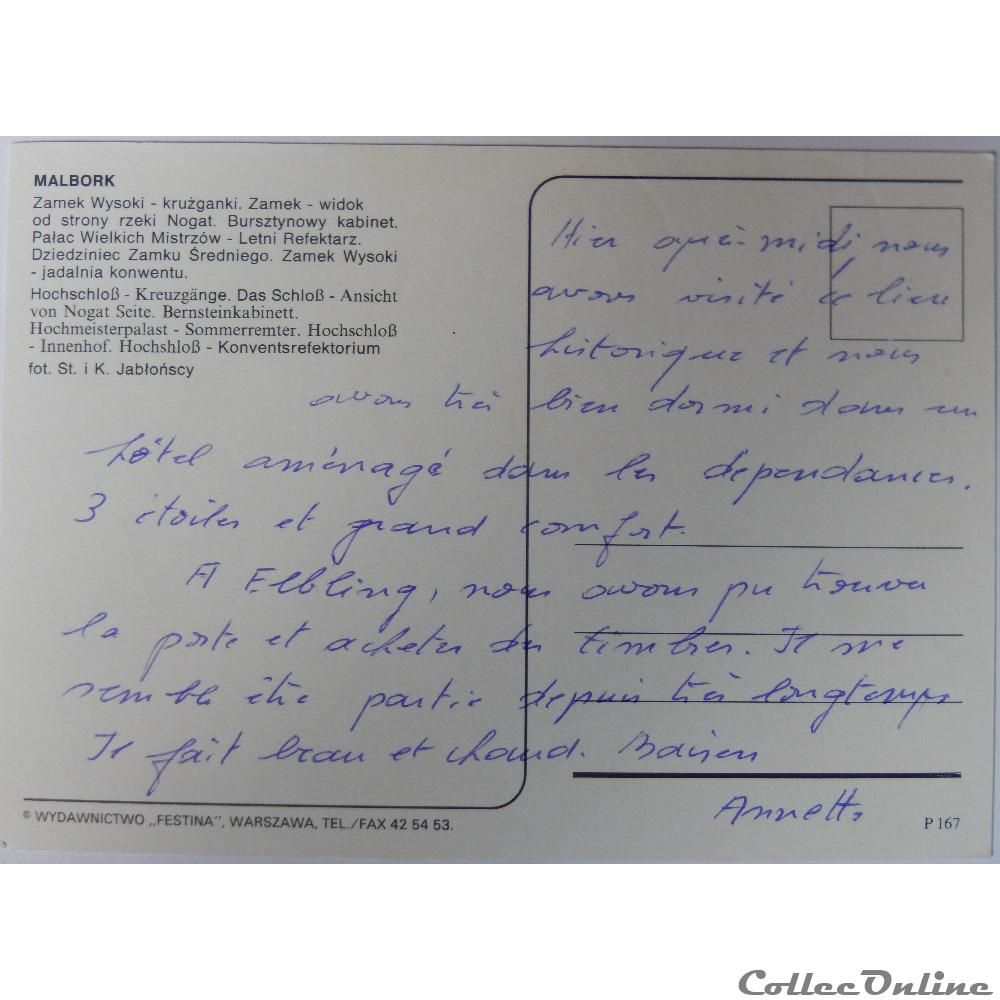 MALBORK
Zamek Wysoki - krużganki. Zamek - widok
od strony rzeki Nogat. Bursztynowy kabinet.
Pałac Wielkich Mistrzów - Letni Refektarz.
Dziedziniec Zamku Średniego. Zamek Wysoki
- jadalnia konwentu.
Hochschloß - Kreuzgänge. Das Schloß - Ansicht
von Nogat Seite. Bernsteinkabinett.
Hochmeisterpalast - Sommerremter. Hochschloß
- Innenhof. Hochshloß - Konventsrefektorium
fot. St. i K. Jabłońscy
Hier après-midi, nous
avons visité ce lieu
historique et nous
avons très bien dormi dans un
hôtel aménagé dans les dépendances.
3 étoiles et grand comfort.
A Elbling, nous avons pu trouver
la poste et acheter des timbres. Il me
semble être partie depuis très longtemps
Il fait beau et chaud. Baisers
Annette
© WYDAWNICTWO „FESTINA", WARSZAWA, TEL./FAX 42 54 53.
P 167
CollecOnline